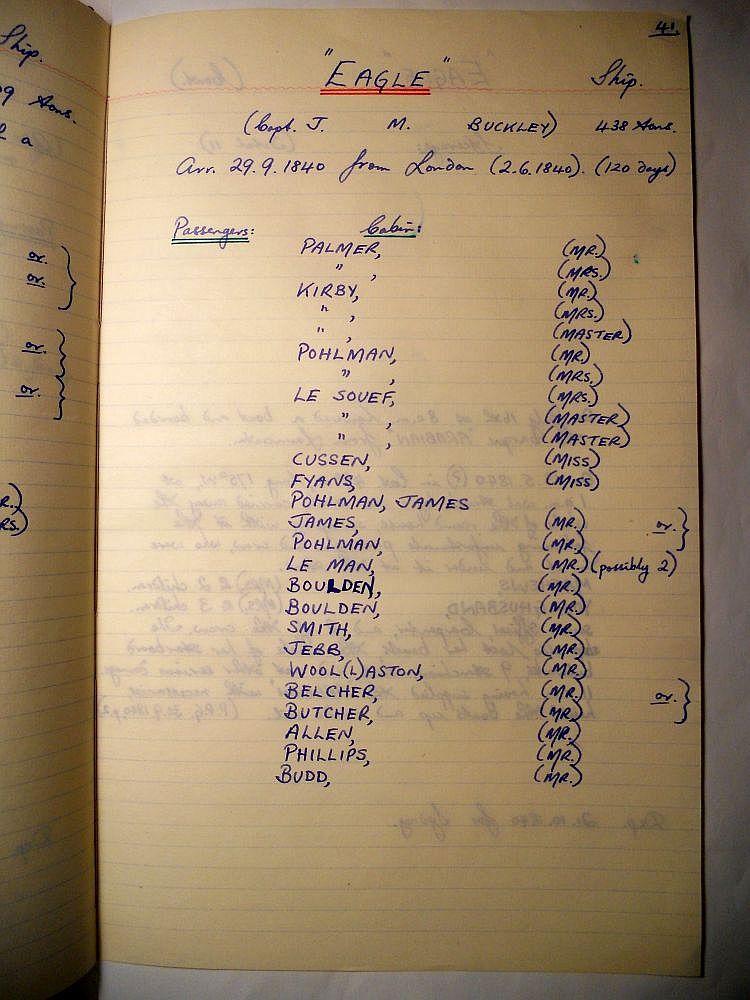 41.
"EAGLE" Ship.
(Capt. J. M. BUCKLEY) 438 tons.
Arr. 29.9.1840 from London (2.6.1840). (120 days)
Passengers: Cabin:
PALMER, (MR.)
" , (MRS.)
KIRBY, (MR.)
" , (MRS.)
" , (MASTER)
POHLMAN, (MR.)
" , (MRS.)
LE SOUEF, (MRS.)
" , (MASTER)
" , (MASTER)
CUSSEN, (MISS)
FYANS, (MISS)
POHLMAN, JAMES
JAMES, (MR.) or. }
POHLMAN, (MR.)
LE MAN, (MR.) (possibly 2)
BOULDEN, (MR.)
BOULDEN, (MR.)
SMITH, (MR.)
JEBB, (MR.)
WOOL(L)ASTON, (MR.)
BELCHER, (MR.) or. }
BUTCHER, (MR.)
ALLEN, (MR.)
PHILLIPS, (MR.)
BUDD, (MR.)
Ship.
tons.
a
or.
or. }
or. }
or. }
R.)
RS.)